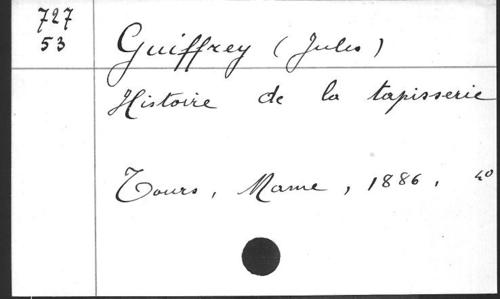 727
53
Guiffrey (Jules)
Histoire de la tapisserie
Tours, Mame, 1886. 4o